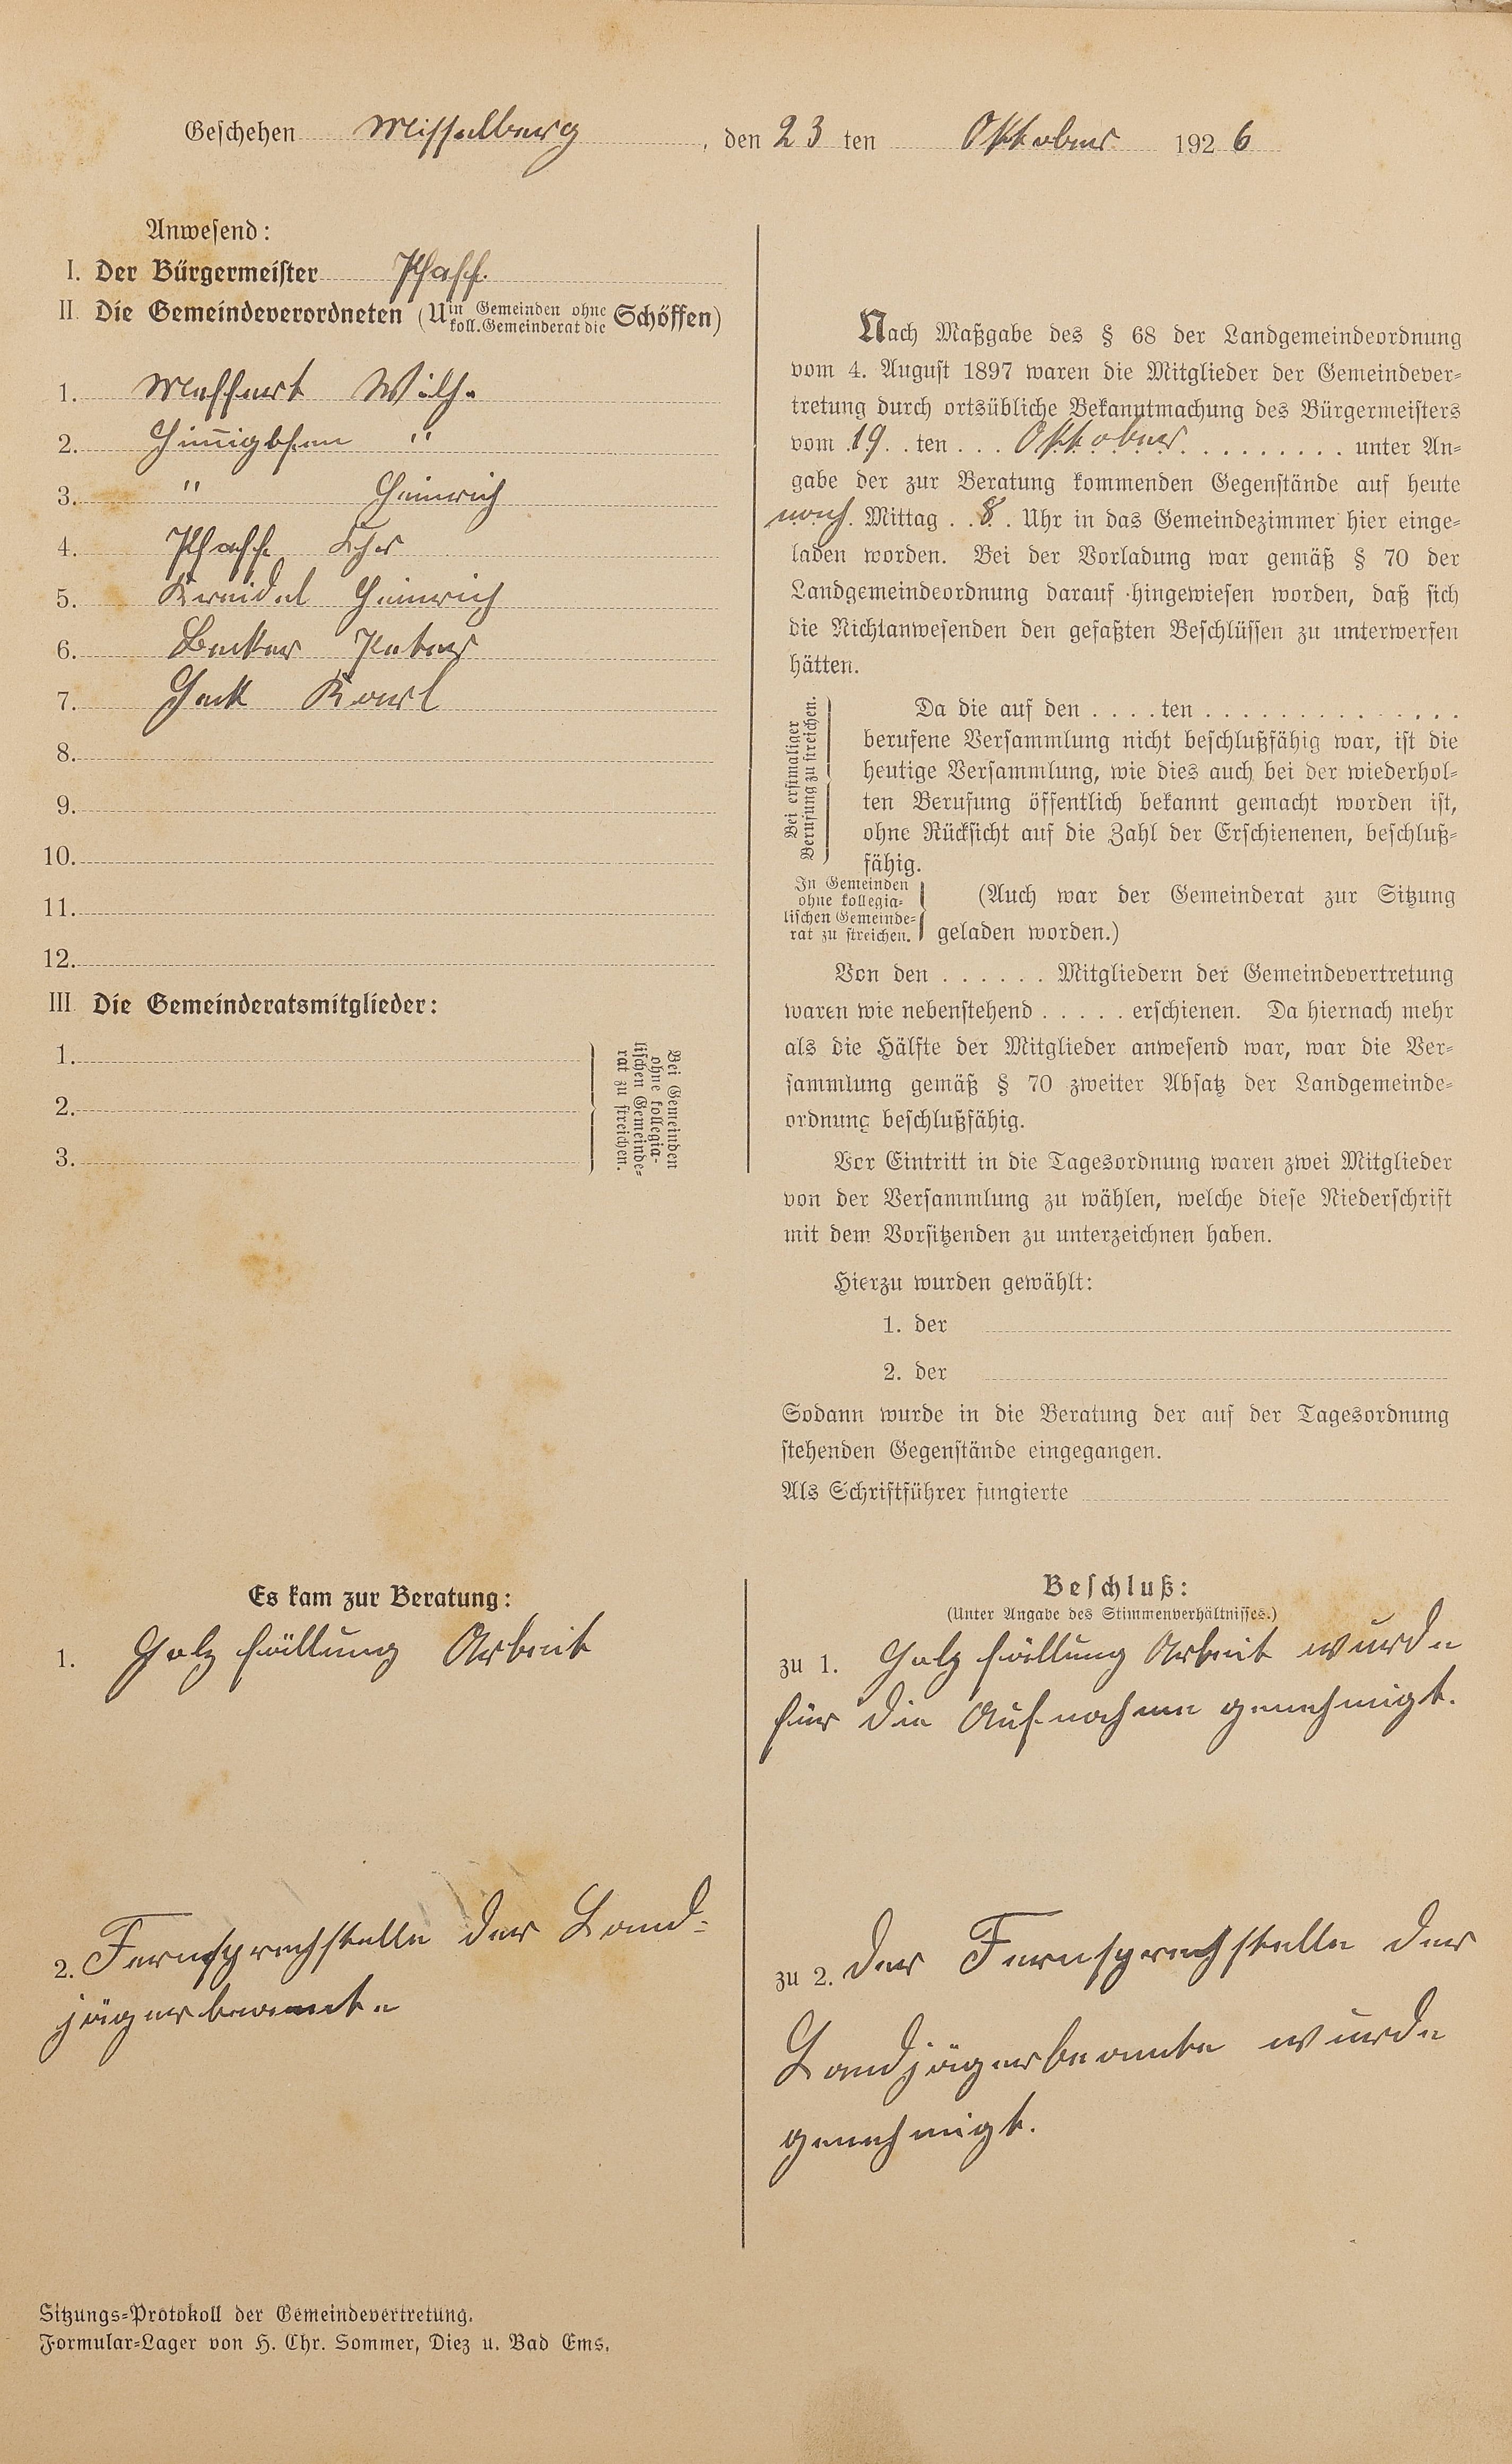 Geschehen Misselberg, den 23 ten Oktober 1926
Anwesend:
I. Der Bürgermeister Pfaff.
II. Die Gemeindeverordneten (U in Gemeinden ohne koll. Gemeinderat die Schöffen)
1. Meffert Wilh.
2. "
3. " Heinrich
4. Pfaff Chr
5. Kreidel Heinrich
6. Becker Peter
7. Heck Karl
8.
9.
10.
11.
12.
III. Die Gemeinderatsmitglieder:
1.
2.
3.
Bei Gemeinden
ohne kollegia-
lischen Gemeinde-
rat zu streichen.
Nach Maßgabe des § 68 der Landgemeindeordnung
vom 4. August 1897 waren die Mitglieder der Gemeindever-
tretung durch ortsübliche Bekanntmachung des Bürgermeisters
vom 19. ten Oktober unter An-
gabe der zur Beratung kommenden Gegenstände auf heute
nach. Mittag 8. Uhr in das Gemeindezimmer hier einge-
laden worden. Bei der Vorladung war gemäß § 70 der
Landgemeindeordnung darauf hingewiesen worden, daß sich
die Nichtanwesenden den gefaßten Beschlüssen zu unterwerfen
hätten.
Bei erstmaliger
Berufung zu streichen.
Da die auf den . . . . ten . . . . . . . . . . . . . . .
berufene Versammlung nicht beschlußfähig war, ist die
heutige Versammlung, wie dies auch bei der wiederhol-
ten Berufung öffentlich bekannt gemacht worden ist,
ohne Rücksicht auf die Zahl der Erschienenen, beschluß-
fähig.
In Gemeinden
ohne kollegia-
lischen Gemeinde-
rat zu streichen.
(Auch war der Gemeinderat zur Sitzung
geladen worden.)
Von den . . . . . . Mitgliedern der Gemeindevertretung
waren wie nebenstehend . . . . . erschienen. Da hiernach mehr
als die Hälfte der Mitglieder anwesend war, war die Ver-
sammlung gemäß § 70 zweiter Absatz der Landgemeinde-
ordnung beschlußfähig.
Vor Eintritt in die Tagesordnung waren zwei Mitglieder
von der Versammlung zu wählen, welche diese Niederschrift
mit dem Vorsitzenden zu unterzeichnen haben.
Hierzu wurden gewählt:
1. der
2. der
Sodann wurde in die Beratung der auf der Tagesordnung
stehenden Gegenstände eingegangen.
Als Schriftführer fungierte
Es kam zur Beratung:
1. Holz fällung Arbeit
2. Fernsprechstelle der Land-
jägerbeamte
Beschluß:
(Unter Angabe des Stimmenverhältnisses.)
zu 1. Holz fällung Arbeit wurde
für die Aufnahme genehmigt.
zu 2. der Fernsprechstelle der
Landjägerbeamte wurde
genehmigt.
Sitzungs-Protokoll der Gemeindevertretung.
Formular-Lager von H. Chr. Sommer, Diez u. Bad Ems.